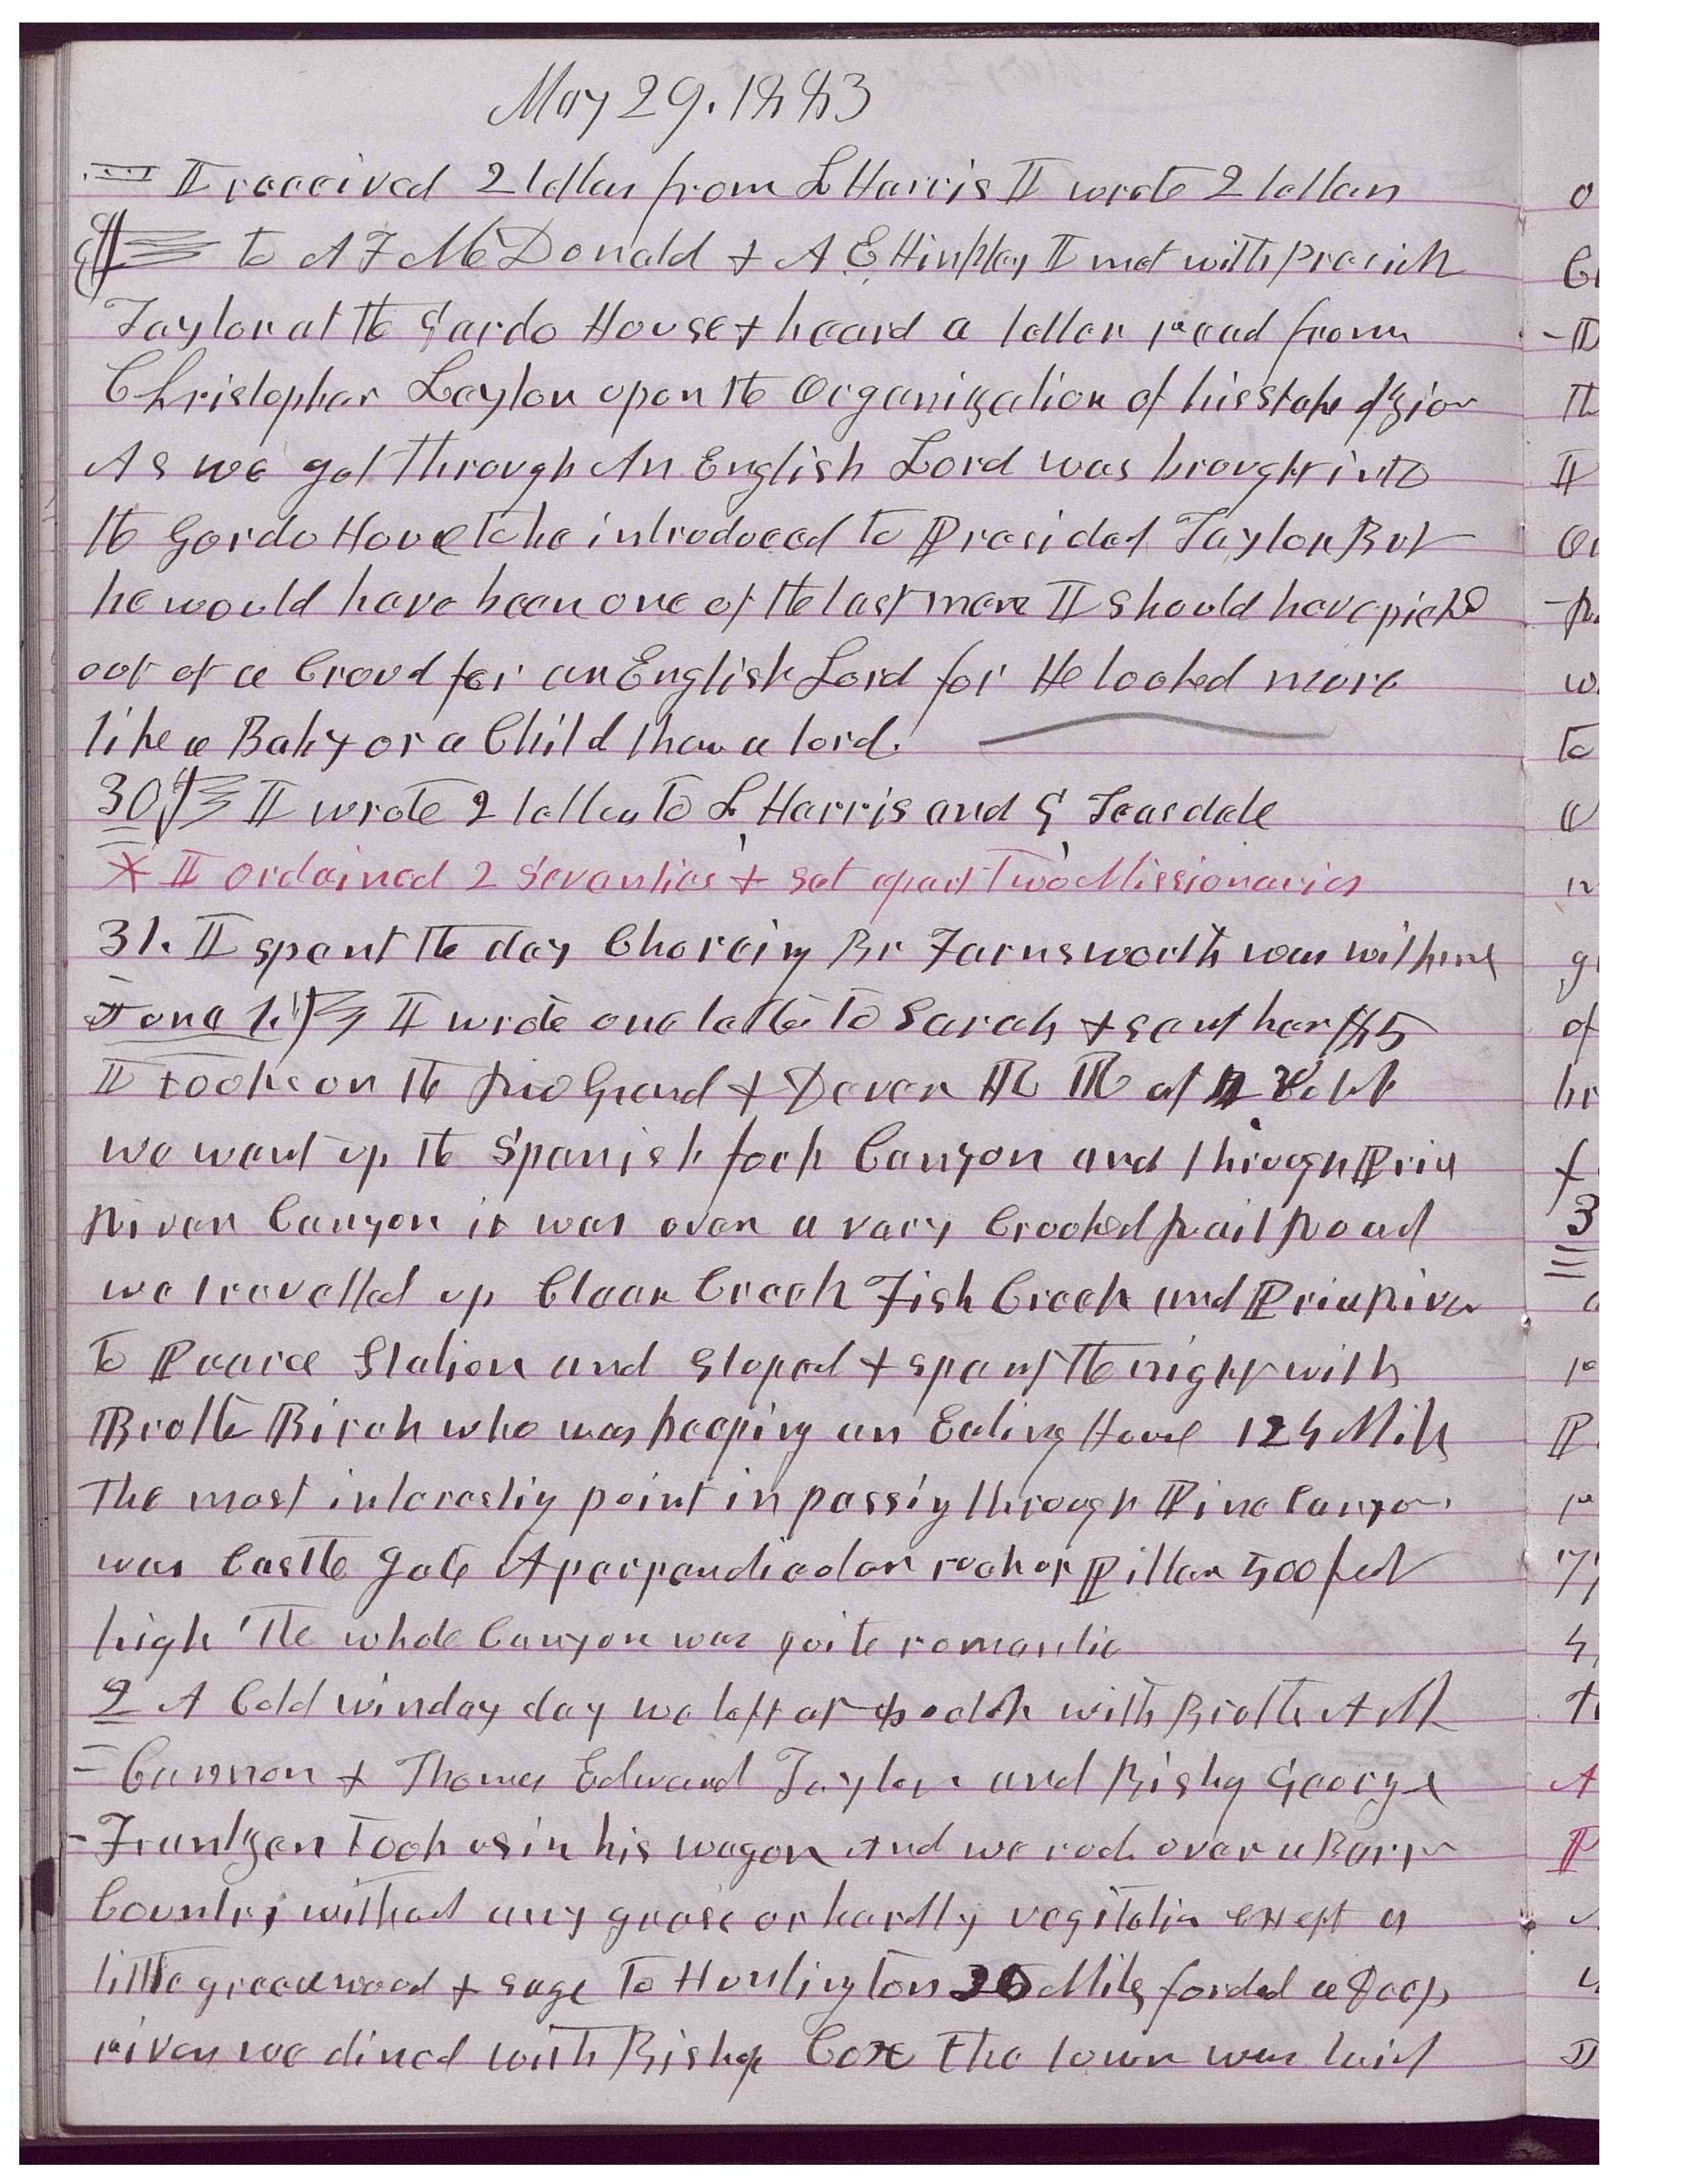 May 29. 1883
I received 2 letters from L Harris I wrote 2 letters
to A F McDonald + A E Hinkley I met with Presidt
Taylor at the Gardo House + heard a letter read from
Christopher Layton upon the Organization of his Stake of Zion
As we got through An English Lord was brought into
the Gardo House to be introduced to President Taylor But
he would have been one of the last men I should have picked
out of a Croud for an English Lord for He looked more
like a Baby or a Child than a lord.
30 I wrote 2 letters to L Harris and G Teasdale
* I ordained 2 Seventies + set apart Two Missionaries
31. I spent the day Choreing Br Farnsworth was with me
June 1. I wrote one letter to Sarah + sent her $5
I took on the Rio Grand + Dever RR at
we went up the Spanish fork Canyon and through Price
River Canyon it was over a very Crooked Rail Road
we travelled up Clear Creek Fish Creek and Price River
to Pearce Station and stoped + spent the night with
Brother Birch who was keeping an Eating House 124 Mils
The most interesting point in passing through Pine Canyon
was Castle Gate A perpendicular rock or Pillar 500 feet
high The whole Canyon was quite romantic
2 A Cold winday day we left at oclok with Brother A M
Cannon + Thomas Edward Taylor and Bishop George
Frantzen took us in his wagon And we rode over a Barren
Country without any grass or hardly vegitatin except a
little greecewood + sage to Huntington 26 Miles forded a Deep
river we dined with Bishop Cox The town was laid